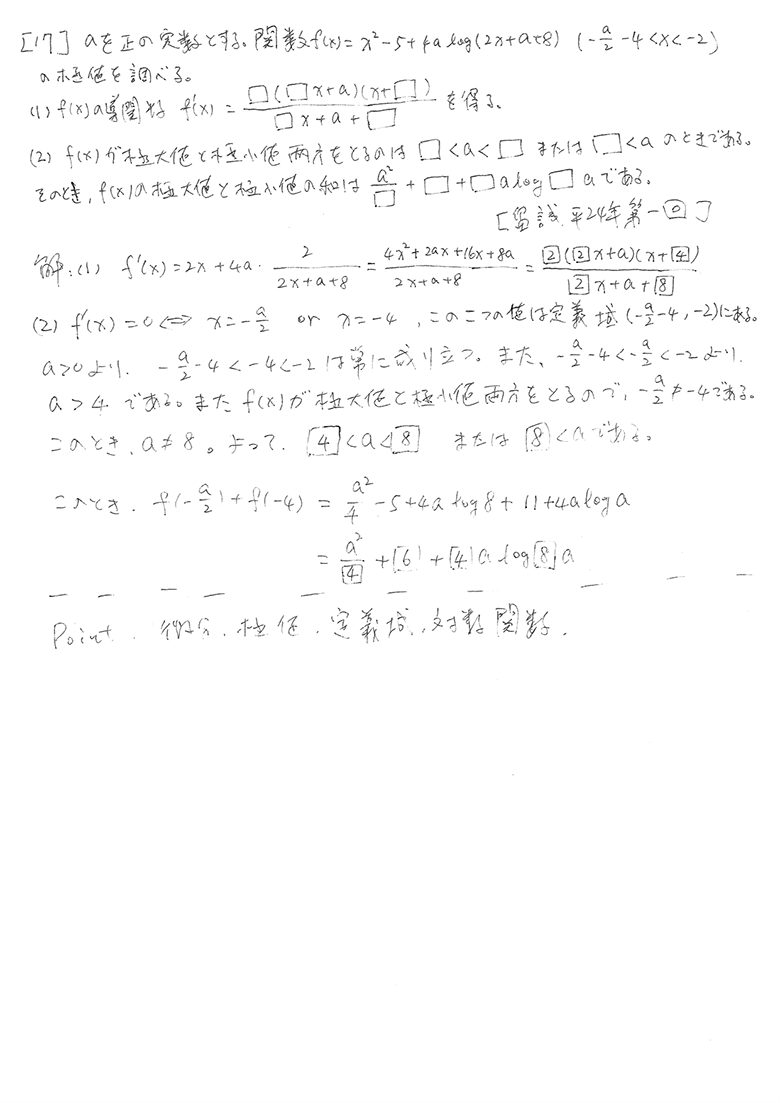 [17] aを正の実数とする。関数f(x)= x²-5+4a log(2x+a+8) (-a/2-4<x<-2)
の極値を調べる。
(1) f(x)の導関数 f'(x) = □(□x+a)(x+□) / □x+a+□ を得る。
(2) f(x)が極大値と極小値両方をとるのは □<a<□ または □<a のときである。
そのとき, f(x)の極大値と極小値の和は a²/□ + □ + □a log□aである。
[留試 平24年第一回]
解:(1) f'(x)=2x+4a・2/(2x+a+8) = (4x²+2ax+16x+8a)/(2x+a+8) = [2]([2]x+a)(x+[4]) / [2]x+a+[8]
(2) f'(x)=0 ⇔ x=-a/2 or x=-4, この二つの値は定義域(-a/2-4, -2)にある。
a>0より. -a/2-4<-4<-2は常に成り立つ。また、-a/2-4<-a/2<-2より.
a>4 である。またf(x)が極大値と極小値両方をとるので, -a/2≠-4である。
このとき, a≠8。よって. [4]<a<[8] または [8]<aである。
このとき. f(-a/2)+f(-4) = a²/4 -5+4a log8+11+4a log a
= a²/[4] +[6] +[4]a log[8]a
Point. 微分. 極値. 定義域. 対数関数.